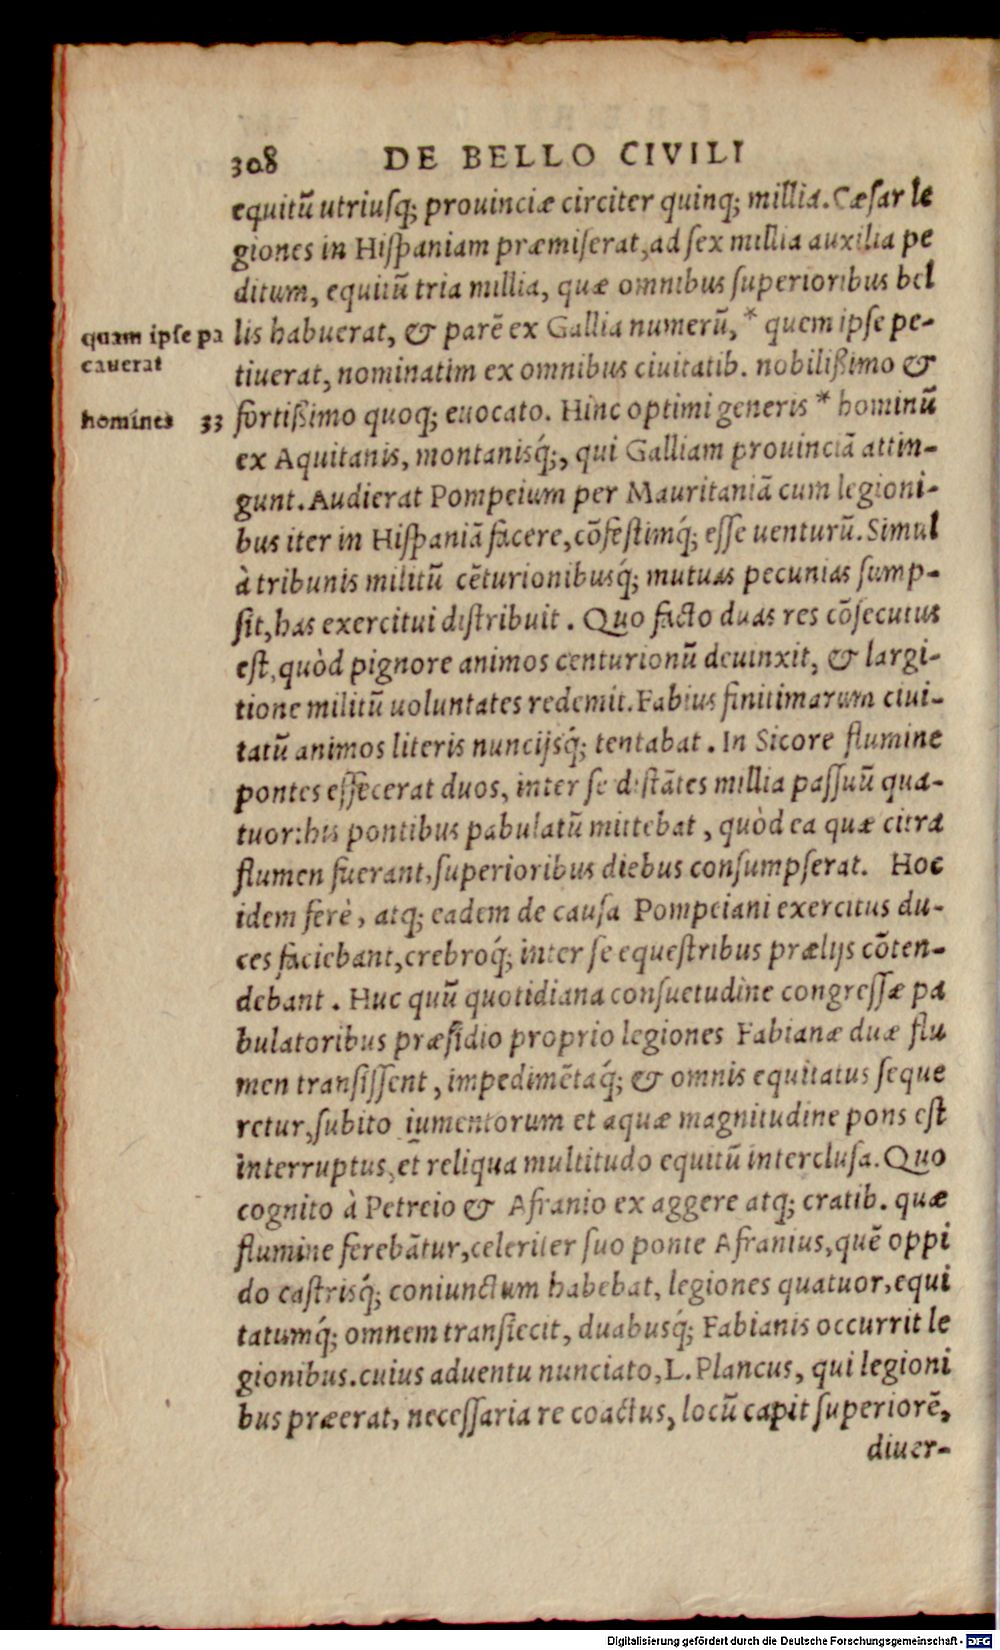 308 DE BELLO CIVILI
equitū utriusq; prouinciæ circiter quinq; millia. Cæsar le
giones in Hispaniam præmiserat, ad sex millia auxilia pe
ditum, equitū tria millia, quæ omnibus superioribus bel
quam ipse pa
cauerat
lis habuerat, & parē ex Gallia numerū, * quem ipse pe-
tiuerat, nominatim ex omnibus ciuitatib. nobilißimo &
homines 33
fortißimo quoq; euocato. Hinc optimi generis * hominū
ex Aquitanis, montanisq́;, qui Galliam prouinciā attin-
gunt. Audierat Pompeium per Mauritaniā cum legioni-
bus iter in Hispaniā facere, cōfestimq́; esse uenturū. Simul
à tribunis militū cēturionibusq́; mutuas pecunias sump-
sit, has exercitui distribuit. Quo facto duas res cōsecutus
est, quòd pignore animos centurionū deuinxit, & largi-
tione militū uoluntates redemit. Fabius finitimarum ciui-
tatū animos literis nuncijsq́; tentabat. In Sicore flumine
pontes effecerat duos, inter se distātes millia passuū qua-
tuor: his pontibus pabulatū mittebat, quòd ea quæ citra
flumen fuerant, superioribus diebus consumpserat. Hoc
idem ferè, atq; eadem de causa Pompeiani exercitus du-
ces faciebant, crebroq́; inter se equestribus prælijs cōten-
debant. Huc quū quotidiana consuetudine congressæ pa
bulatoribus præsidio proprio legiones Fabianæ duæ flu
men transissent, impedimētaq́; & omnis equitatus seque
retur, subito iumentorum et aquæ magnitudine pons est
interruptus, et reliqua multitudo equitū interclusa. Quo
cognito à Petreio & Afranio ex aggere atq; cratib. quæ
flumine ferebātur, celeriter suo ponte Afranius, quē oppi
do castrisq́; coniunctum habebat, legiones quatuor, equi
tatumq́; omnem transiecit, duabusq́; Fabianis occurrit le
gionibus. cuius aduentu nunciato, L. Plancus, qui legioni
bus præerat, necessaria re coactus, locū capit superiorē,
diuer-
Digitalisierung gefördert durch die Deutsche Forschungsgemeinschaft - DFG